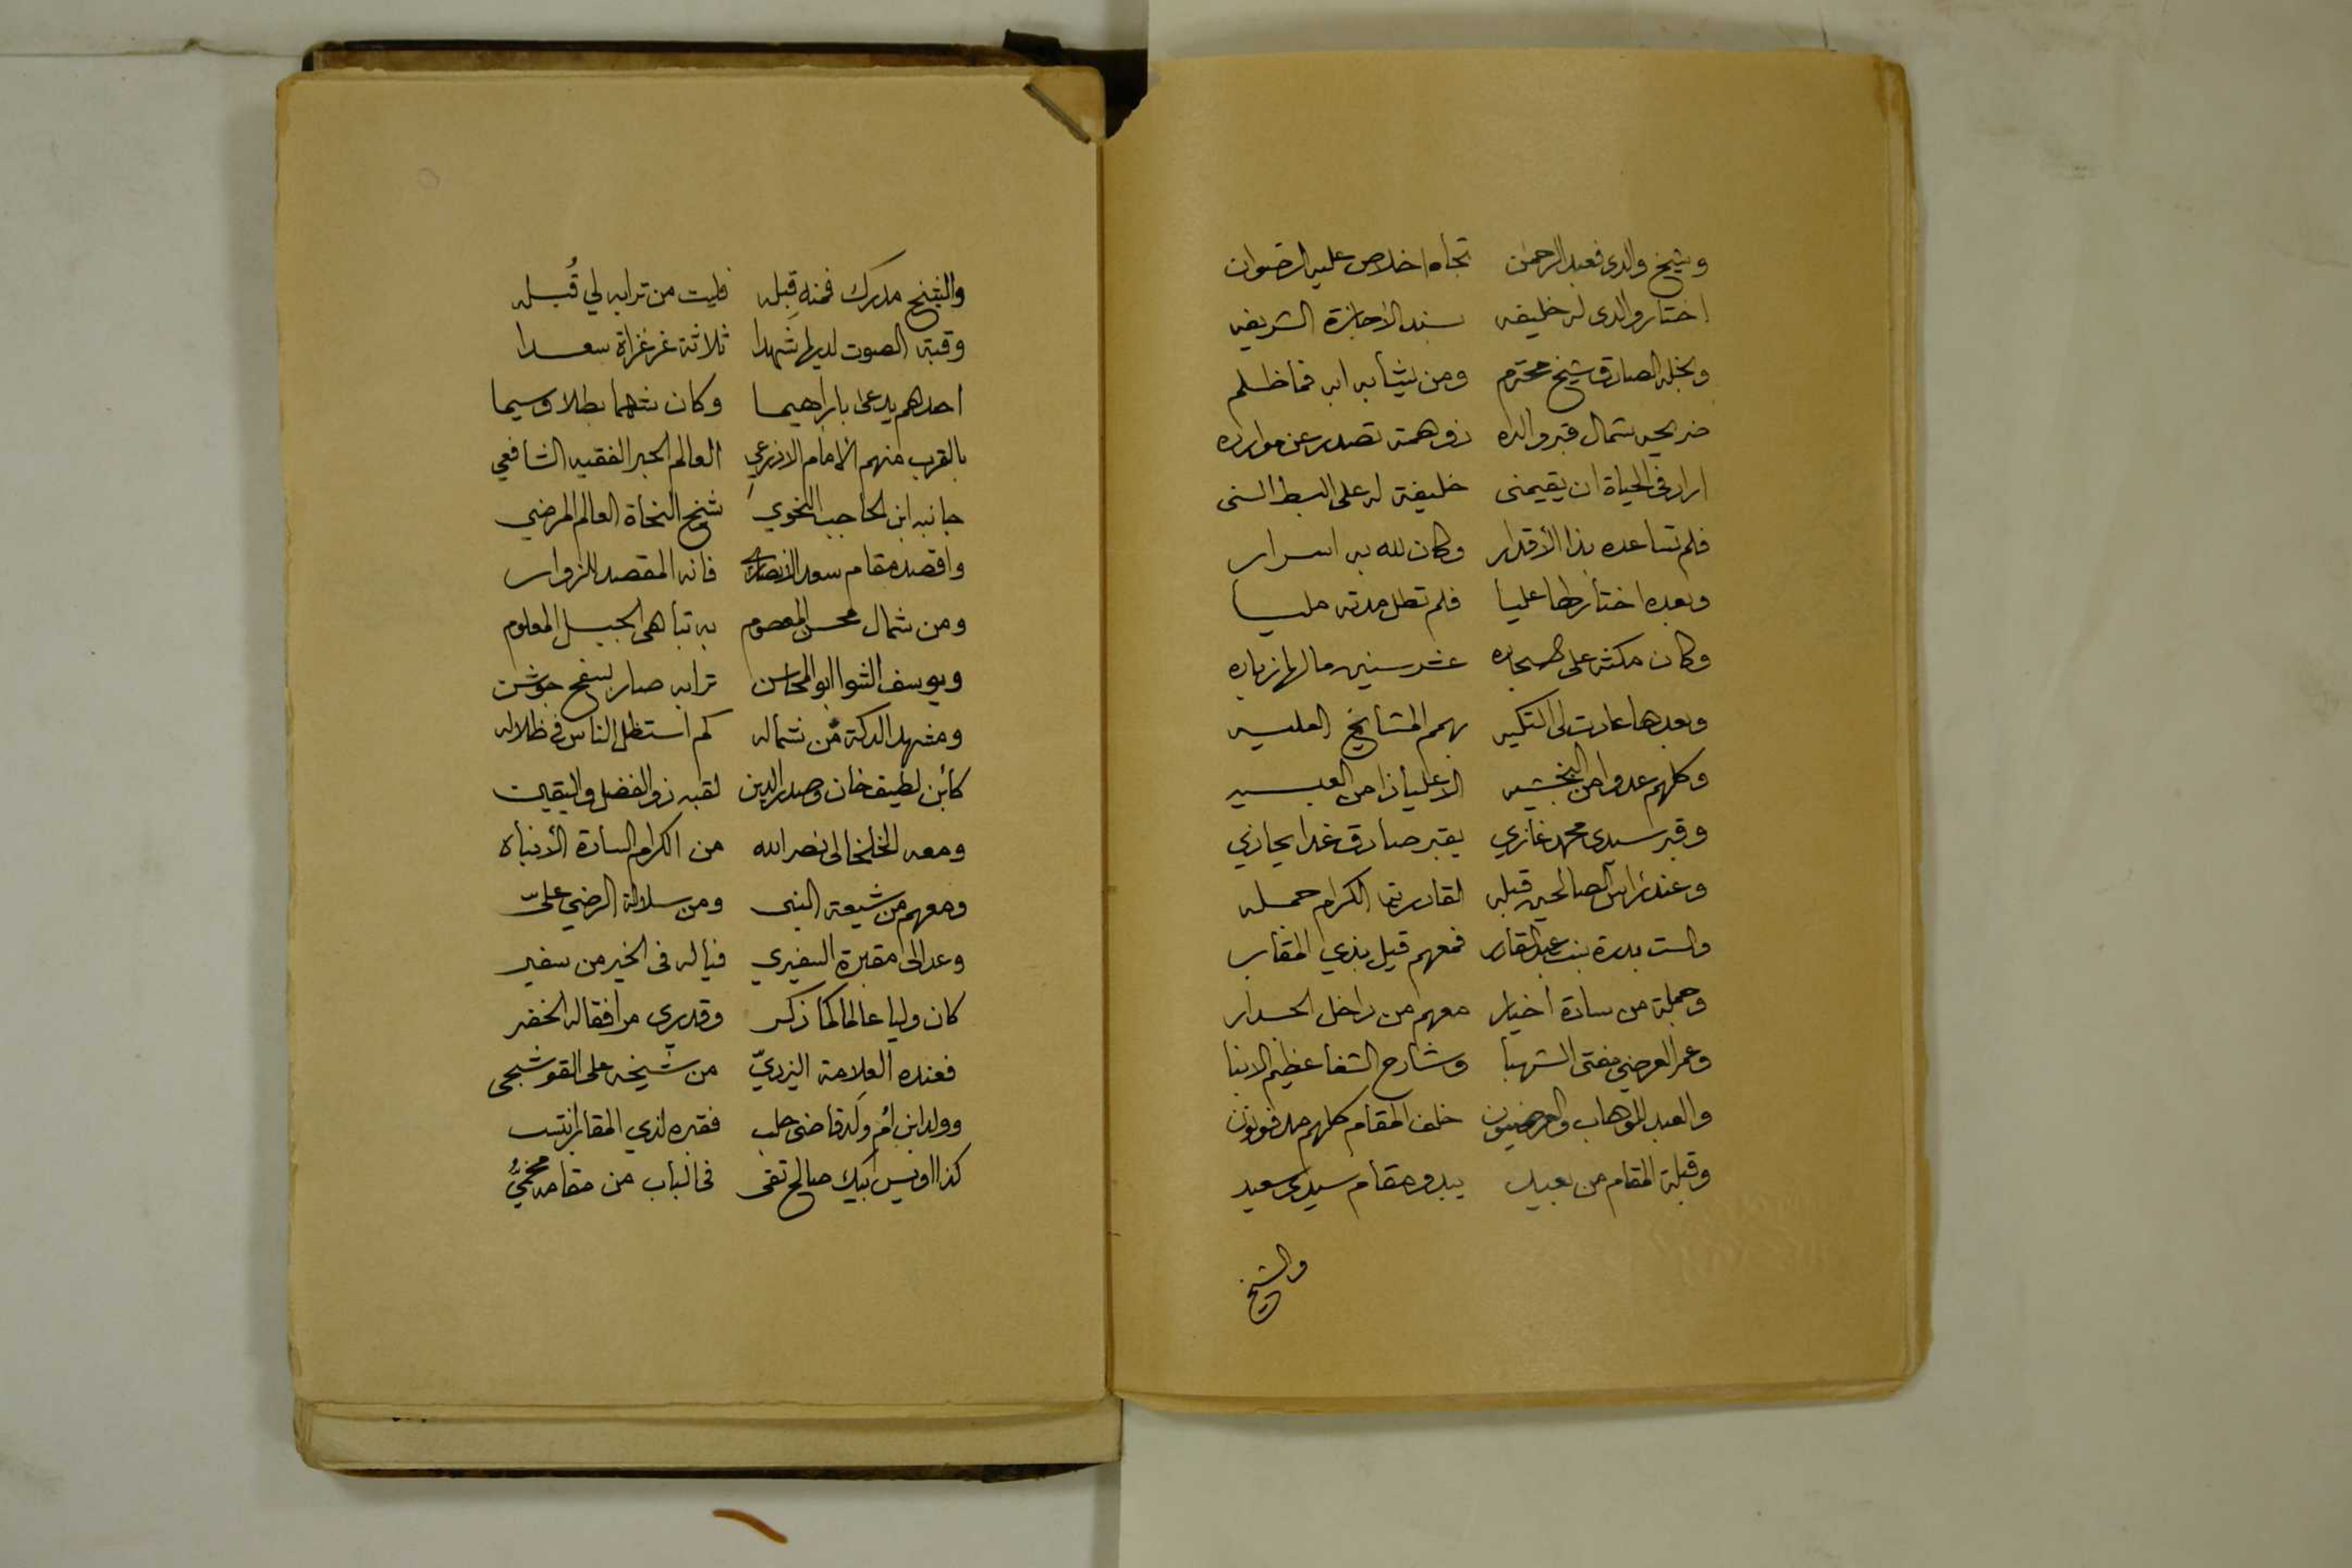 وشيخ والدى فعبد الرحمن تجاه اخلاص عليه الرضوان
اختار والدى له خليفه بسند الأجازة الشريفه
ونجله الصادق شيخ محترم ومن يشابه ابه فما ظلم
ضريحه شمال قبر والده ذو همة تصدر عن موارده
اراد فى الحياة ان يقيمنى خليفة له على البسط السنى
فلم تساعده بذا الأقدار وكان لله به اسرار
وبعده اختار طه عليا فلم تطل مدته مليا
وكان مكثه على سجاده عشر سنين ما لها زياده
وبعدها عادت الى التكيه بهمم المشايخ العليه
وكلهم عدوا من البخشيه الا عليا ذا من العبسيه
وقبر سيدى محمد غازي بقبر صادق غدا يحاذي
وعند رأس الصالحين قبله لقادرتنا الكرام جمله
والست بدرة بنت عبد القادر فمعهم قيل بذي المقابر
وجملة من سادة أخيار معهم من داخل الجدار
وعمر العرضي مفتى الشهبا وشارح الشفا عظيم الانبا
والعبد للوهاب والعرضيون خلف المقام كلهم مدفونون
وقبلة المقام من بعيد يبدو مقام سيدى سعيد
والشيخ
والشيخ مدرك فمنه قِبله فليت من ترابه لي قُبله
وقبة الصوت لديها شهدا ثلاثة غر غزاة سعدا
احدهم يدعى بابراهيما وكان شهما بطلا وسيما
بالقرب منهم الأمام الاذرعي العالم الحبر الفقيه الشافعي
جانبه ابن الحاجب النحوي شيخ النحاة العالم المرضي
واقصد مقام سعد الانصاري فانه المقصد للزوار
ومن شمال محسن المعصوم به تباهى الجبل المعلوم
ويوسف الشوا ابو المحاسن ترابه صار بسفح جوشن
ومشهد الدكة من شماله كم استظل الناس فى ظلاله
كأبن لطيف خان وصدر الدين لقبه ذو الفضل واليقين
ومعه الخلخالى نصر الله من الكرام السادة الأنباه
ومعهم من شيعة النبى ومن سلالة الرضي عليّ
وعد الى مقبرة السفيري فيا له فى الخير من سفير
كان وليا عالما كما ذكر وقد يرى مرافقا له الخضر
فعنده العلامة اليزديّ من شيخه على القوشجى
وولد ابن أم ولد قاضى حلب فقبره لذي المقابر انتسب
كذا اويس بيك صالح تقى فى الباب من مقامه مخميُّ